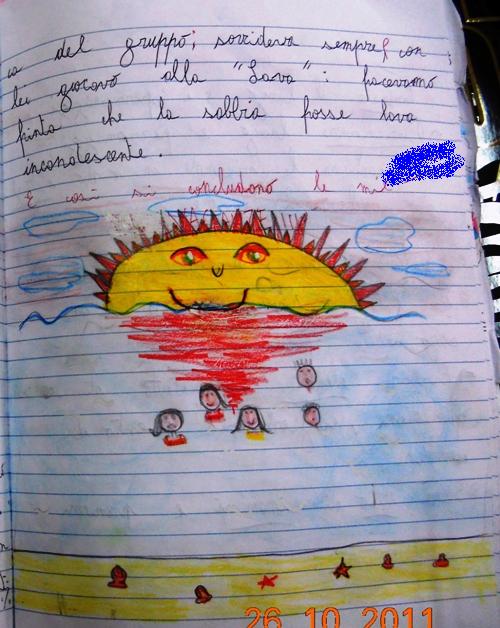 ca del gruppo; sorrideva sempre e con
lei giocavo alla "Lava": facevamo
finta che la sabbia fosse lava
incandescente.
E così si concludono le mie
VACANZE
26 10 2011